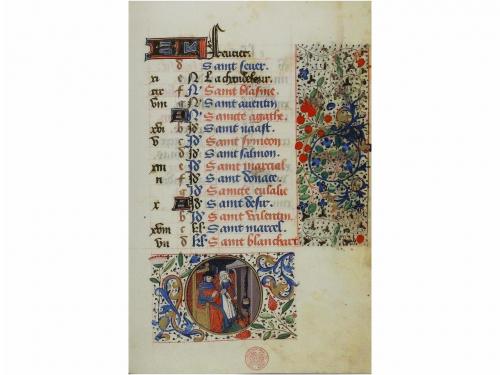 KL feurier.
d Saint seuer.
xi e N La chandeleur.
xix f N Saint blasine
viii g N Saint auentin
A N Saincte agathe.
xvi b id Saint vaast.
v c id Saint symeon
d id Saint salmon.
xiii e id Saint marcial
ii f id Saint donate.
g id Saincte eulalie
x A id Saint desir.
b id Saint valentin.
xviii c kl Saint marcel.
vii d kl Saint blanchart